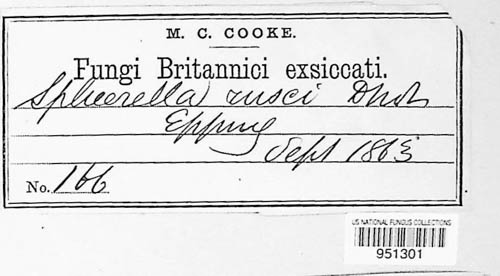 M. C. COOKE.
Fungi Britannici exsiccati.
Sphærella rusci DNot
Epping
Sept 1863
No. 166
US NATIONAL FUNGUS COLLECTIONS
951301